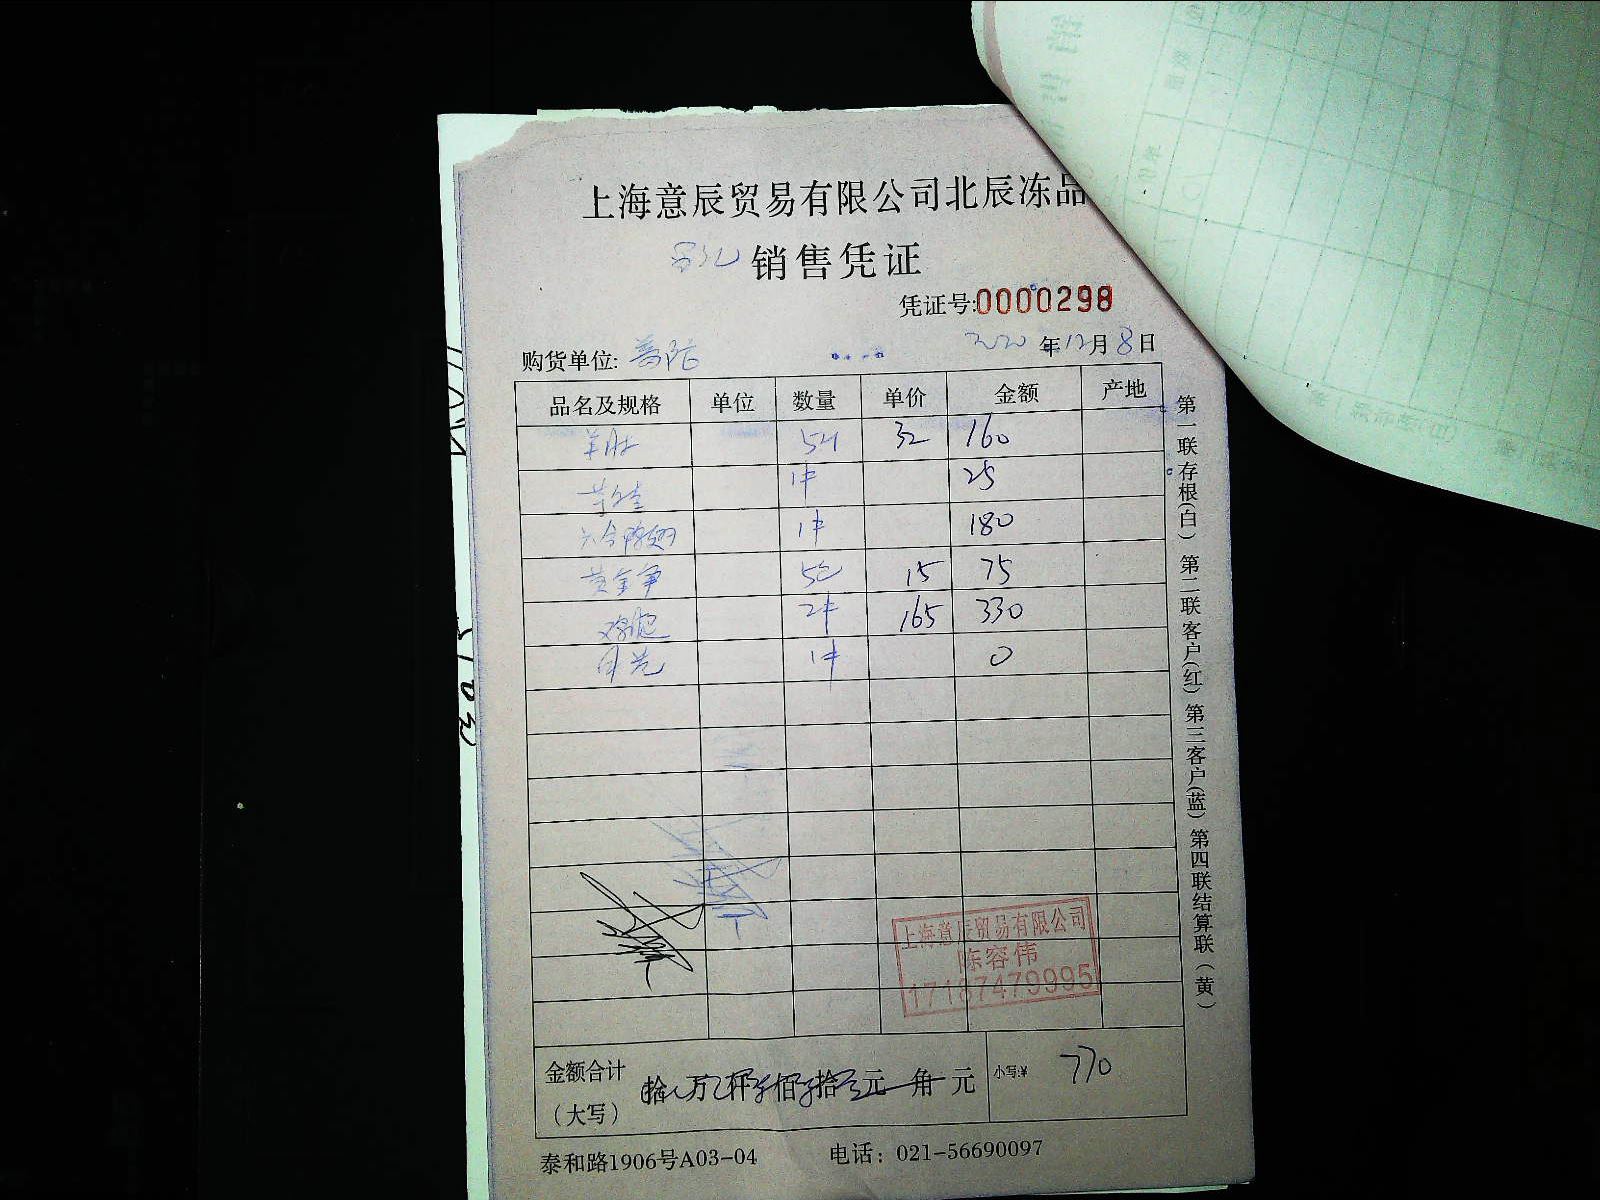 上海意辰贸易有限公司北辰冻品
销售凭证
凭证号:0000298
购货单位: 普陀 2020 年 12 月 8 日
品名及规格 单位 数量 单价 金额 产地
羊肚 5 32 160
1件 25
六合鸭翅 1件 180
黄金 5包 15 75
2件 165 330
1件 0
上海意辰贸易有限公司
陈容伟
17187479995
金额合计
(大写) 拾 万 仟 佰 拾 元 角 元 小写:¥ 770
泰和路1906号A03-04 电话：021-56690097
第一联存根(白) 第二联客户(红) 第三客户(蓝) 第四联结算联(黄)